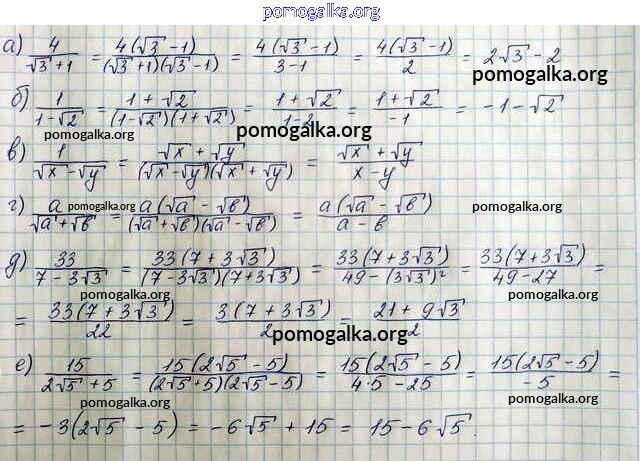 pomogalka.org
а) 4/(√3+1) = 4(√3-1)/((√3+1)(√3-1)) = 4(√3-1)/(3-1) = 4(√3-1)/2 = 2√3-2
pomogalka.org
б) 1/(1-√2) = (1+√2)/((1-√2)(1+√2)) = (1+√2)/(1-2) = (1+√2)/(-1) = -1-√2
pomogalka.org pomogalka.org pomogalka.org
в) 1/(√x-√y) = (√x+√y)/((√x-√y)(√x+√y)) = (√x+√y)/(x-y)
г) a/(√a+√b) = a(√a-√b)/((√a+√b)(√a-√b)) = a(√a-√b)/(a-b)
pomogalka.org pomogalka.org
д) 33/(7-3√3) = 33(7+3√3)/((7-3√3)(7+3√3)) = 33(7+3√3)/(49-(3√3)²) = 33(7+3√3)/(49-27) =
pomogalka.org pomogalka.org
= 33(7+3√3)/22 = 3(7+3√3)/2 = (21+9√3)/2
pomogalka.org
е) 15/(2√5+5) = 15(2√5-5)/((2√5+5)(2√5-5)) = 15(2√5-5)/(4·5-25) = 15(2√5-5)/(-5) =
pomogalka.org pomogalka.org
= -3(2√5-5) = -6√5+15 = 15-6√5.